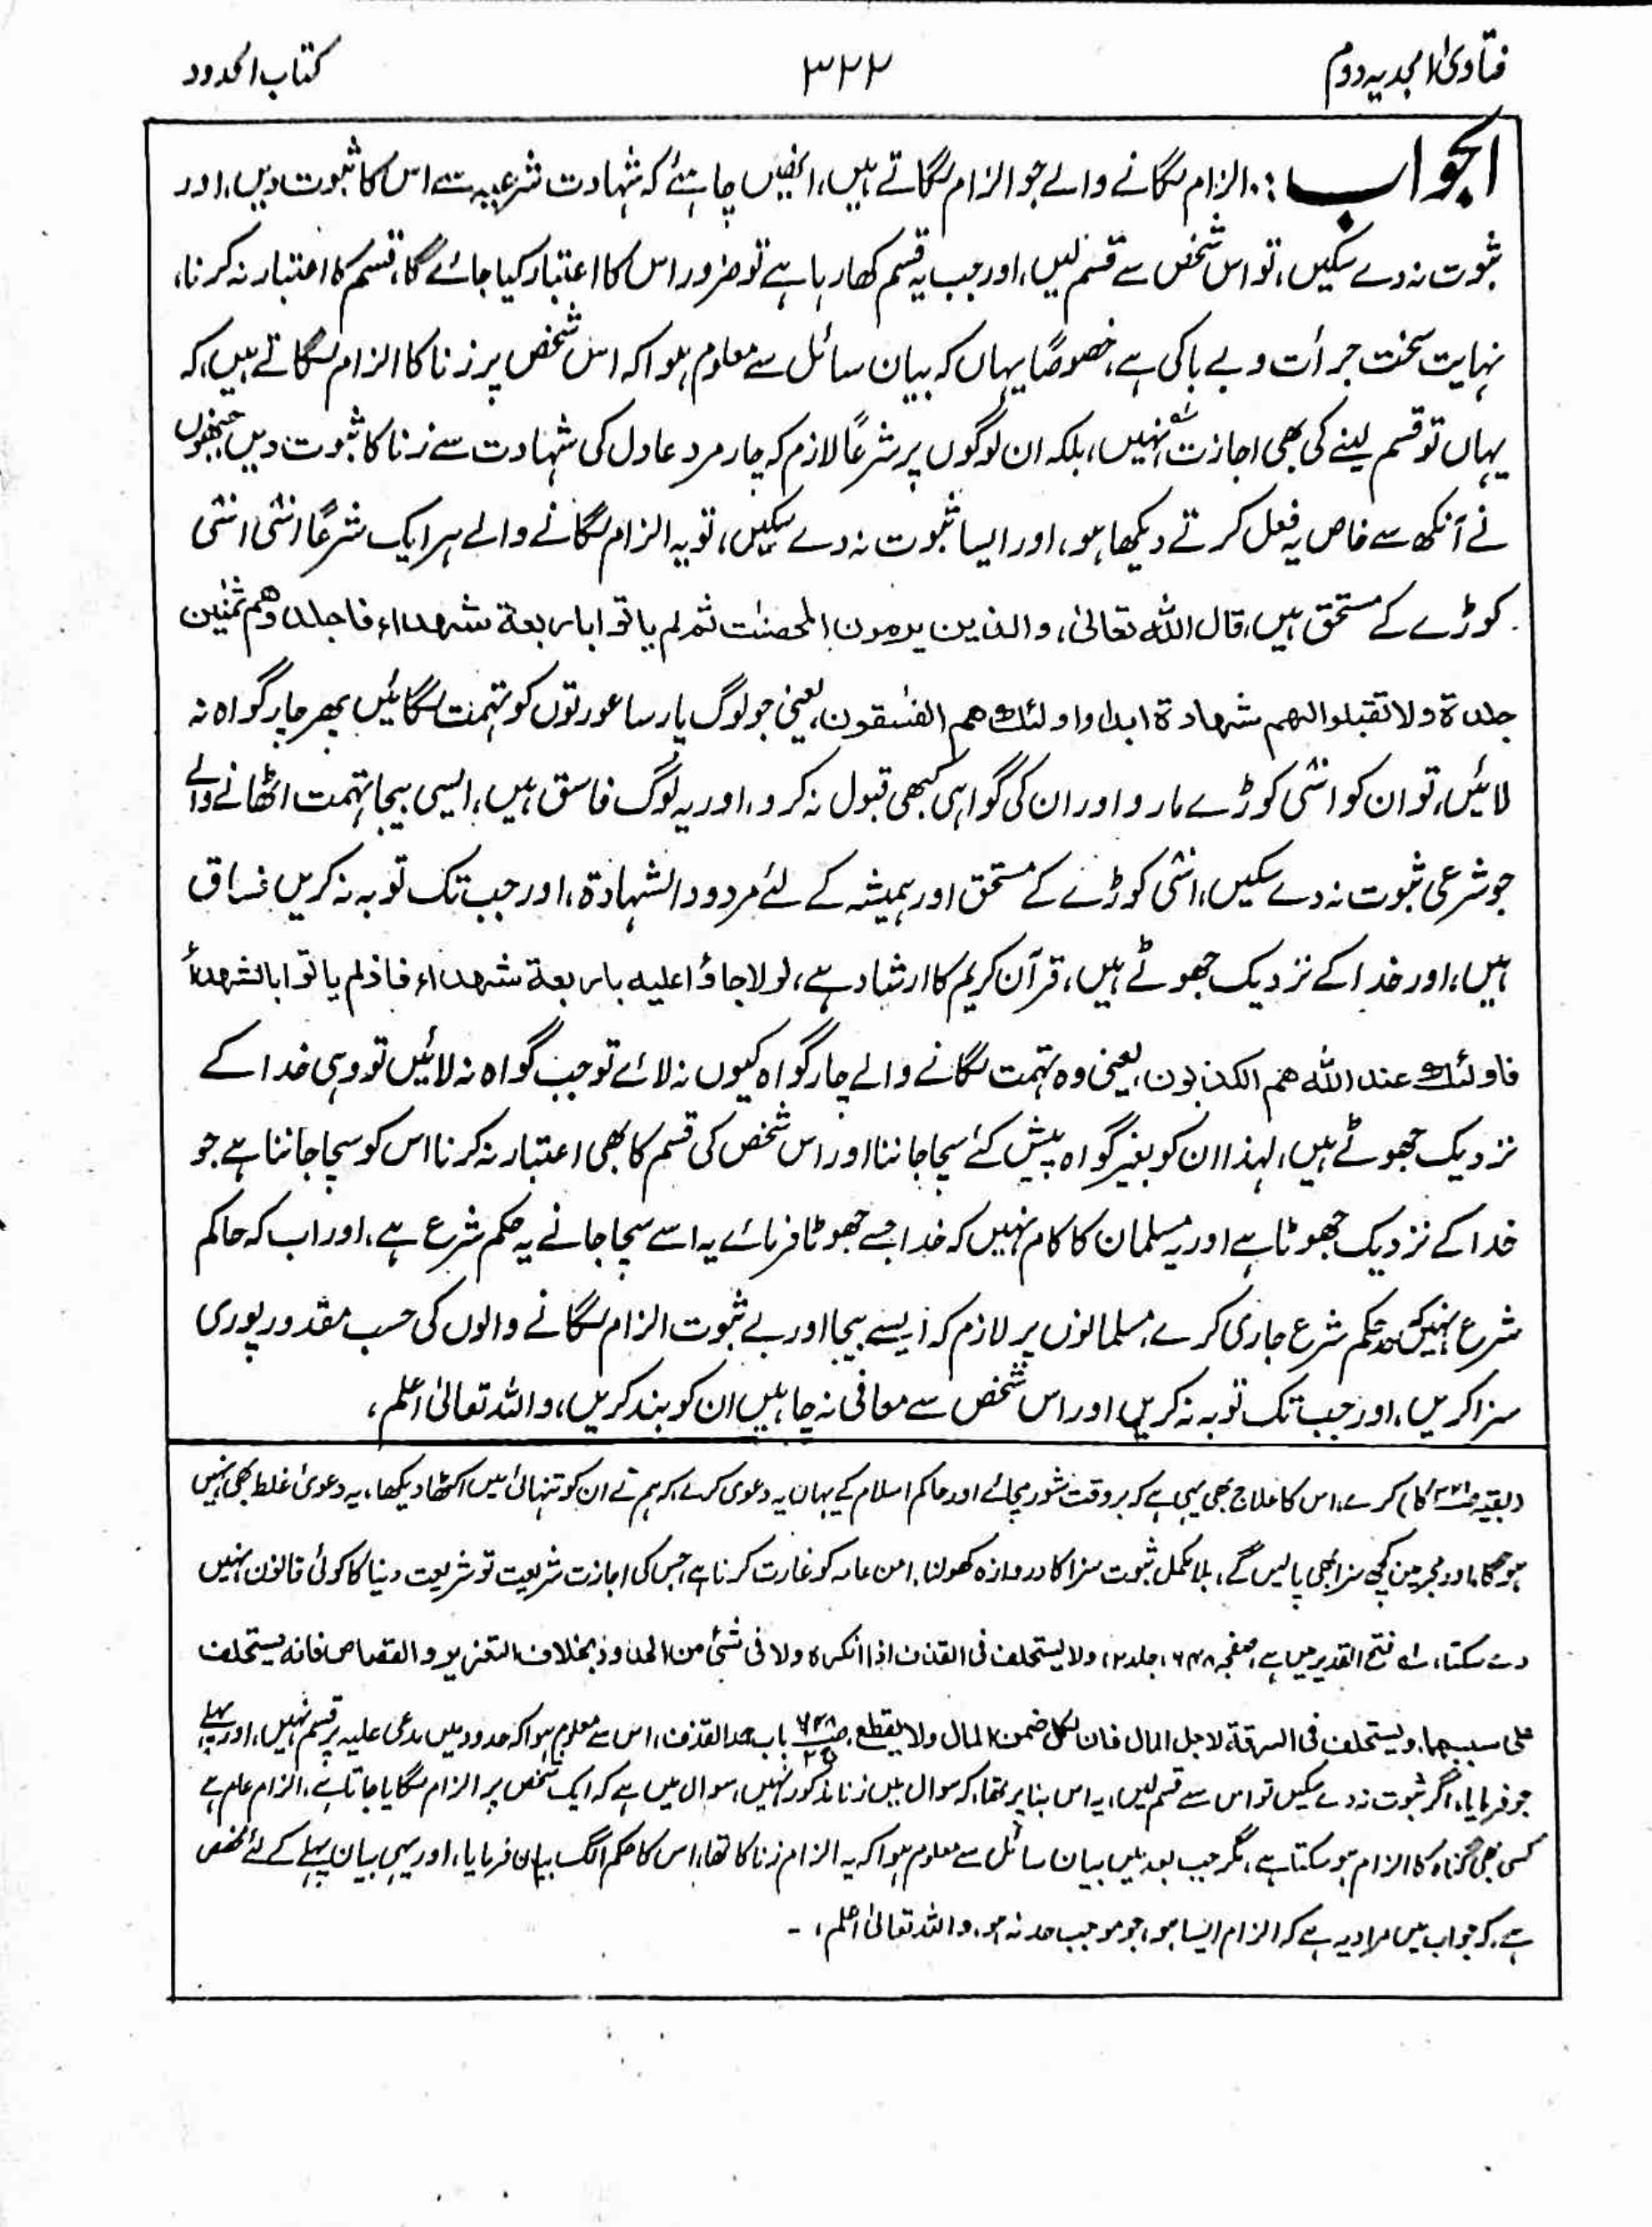 فتاویٰ امجدیہ دوم ۳۲۲ کتاب الحدود
الجواب :۔ الزام لگانے والے جو الزام لگاتے ہیں، انھیں چاہئے کہ شہادت شرعیہ سے اس کا ثبوت دیں، اور
ثبوت نہ دے سکیں، تو اس شخص سے قسم لیں، اور جب یہ قسم کھا رہا ہے تو ضرور اس کا اعتبار کیا جائے گا، قسم کا اعتبار نہ کرنا،
نہایت سخت جرأت و بے باکی ہے، خصوصًا یہاں کہ بیان سائل سے معلوم ہوا کہ اس شخص پر زنا کا الزام لگاتے ہیں، کہ
یہاں تو قسم لینے کی بھی اجازت نہیں، بلکہ ان لوگوں پر شرعًا لازم کہ چار مرد عادل کی شہادت سے زنا کا ثبوت دیں جنھوں
نے آنکھ سے خاص یہ فعل کرتے دیکھا ہو، اور ایسا ثبوت نہ دے سکیں، تو یہ الزام لگانے والے ہر ایک شرعًا اسّی اسّی
کوڑے کے مستحق ہیں، قال اللہ تعالیٰ، والذین یرمون المحصنٰت ثم لم یاتوا باربعة شہداء فاجلدوھم ثمٰنین
جلدة ولا تقبلوا لھم شہادة ابدا و اولٰئک ھم الفٰسقون، یعنی جو لوگ پارسا عورتوں کو تہمت لگائیں پھر چار گواہ نہ
لائیں، تو ان کو اسّی کوڑے مارو اور ان کی گواہی کبھی قبول نہ کرو، اور یہ لوگ فاسق ہیں، ایسی بیجا تہمت اٹھانے والے
جو شرعی ثبوت نہ دے سکیں، اسّی کوڑے کے مستحق اور ہمیشہ کے لئے مردود الشہادة، اور جب تک توبہ نہ کریں فساق
ہیں، اور خدا کے نزدیک جھوٹے ہیں، قرآن کریم کا ارشاد ہے، لولا جاؤا علیہ باربعة شہداء فاذ لم یاتوا بالشہداء
فاولٰئک عند اللہ ھم الکٰذبون، یعنی وہ تہمت لگانے والے چار گواہ کیوں نہ لائے تو جب گواہ نہ لائیں تو وہی خدا کے
نزدیک جھوٹے ہیں، لہذا ان کو بغیر گواہ پیش کئے سچا جاننا اور اس شخص کی قسم کا بھی اعتبار نہ کرنا اس کو سچا جاننا ہے جو
خدا کے نزدیک جھوٹا ہے اور یہ مسلمان کا کام نہیں کہ خدا جسے جھوٹا فرمائے یہ اسے سچا جانے یہ حکم شرع ہے، اور اب کہ حاکم
شرع نہیں کہ حکم شرع جاری کرے، مسلمانوں پر لازم کہ ایسے بیجا اور بے ثبوت الزام لگانے والوں کی حسب مقدور پوری
سزا کریں، اور جب تک توبہ نہ کریں اور اس شخص سے معافی نہ چاہیں ان کو بند کریں، واللہ تعالیٰ اعلم،
(بقیہ ص۳۲۱ کا) کرے، اس کا علاج بھی یہی ہے کہ بر وقت شور مچائے اور حاکم اسلام کے یہاں یہ دعوی کرے کہ ہم نے ان کو تنہائی میں اکٹھا دیکھا، یہ دعویٰ غلط بھی نہیں
ہوگا، اور مجرمین کچھ سزا بھی پالیں گے، بلا مکمل ثبوت سزا کا دروازہ کھولنا، امن عامہ کو غارت کرنا ہے جس کی اجازت شریعت تو شریعت دنیا کا کوئی قانون نہیں
دے سکتا، فتح القدیر میں ہے، جلد ۲، ولا یستحلف فی القذف اذا انکرہ ولا فی شئ من الحدود بخلاف التعزیر و القصاص فانہ یستحلف
علی سببھما، و یستحلف فی السرقة لاجل المال فان نکل ضمن المال ولا یقطع، باب حد القذف، اس سے معلوم ہوا کہ حدود میں مدعی علیہ پر قسم نہیں، اور پہلے
جو فرمایا، اگر ثبوت نہ دے سکیں تو اس سے قسم لیں، یہ اس بنا پر تھا، کہ سوال میں زنا مذکور نہیں، سوال میں ہے کہ ایک شخص پر الزام لگایا جاتا ہے، الزام عام ہے
کسی بھی گناہ کا الزام ہو سکتا ہے، مگر جب بعد میں بیان سائل سے معلوم ہوا کہ یہ الزام زنا کا تھا، اس کا حکم الگ بیان فرمایا، اور یہی بیان پہلے کے لئے مخصص
ہے، کہ جواب میں مراد یہ ہے کہ الزام ایسا ہو، جو موجب حد نہ ہو، واللہ تعالیٰ اعلم، ۔